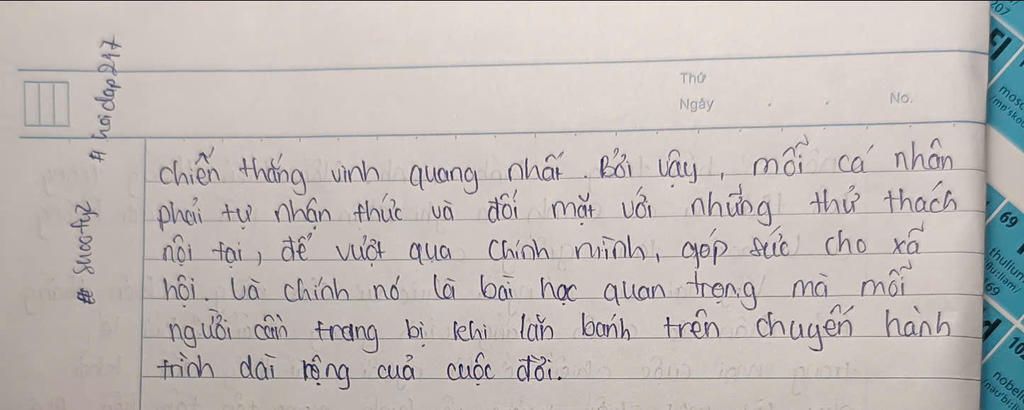 #hoidap247
#suo+y2
Thứ
Ngày
No.
chiến thắng vinh quang nhất. Bởi vậy, mỗi cá nhân
phải tự nhận thức và đối mặt với những thử thách
nội tại, để vượt qua chính mình, góp sức cho xã
hội. Và chính nó là bài học quan trọng mà mỗi
người cần trang bị khi lăn bánh trên chuyến hành
trình dài rộng của cuộc đời.
69
thulium
69
10
nobeli
207
mosc